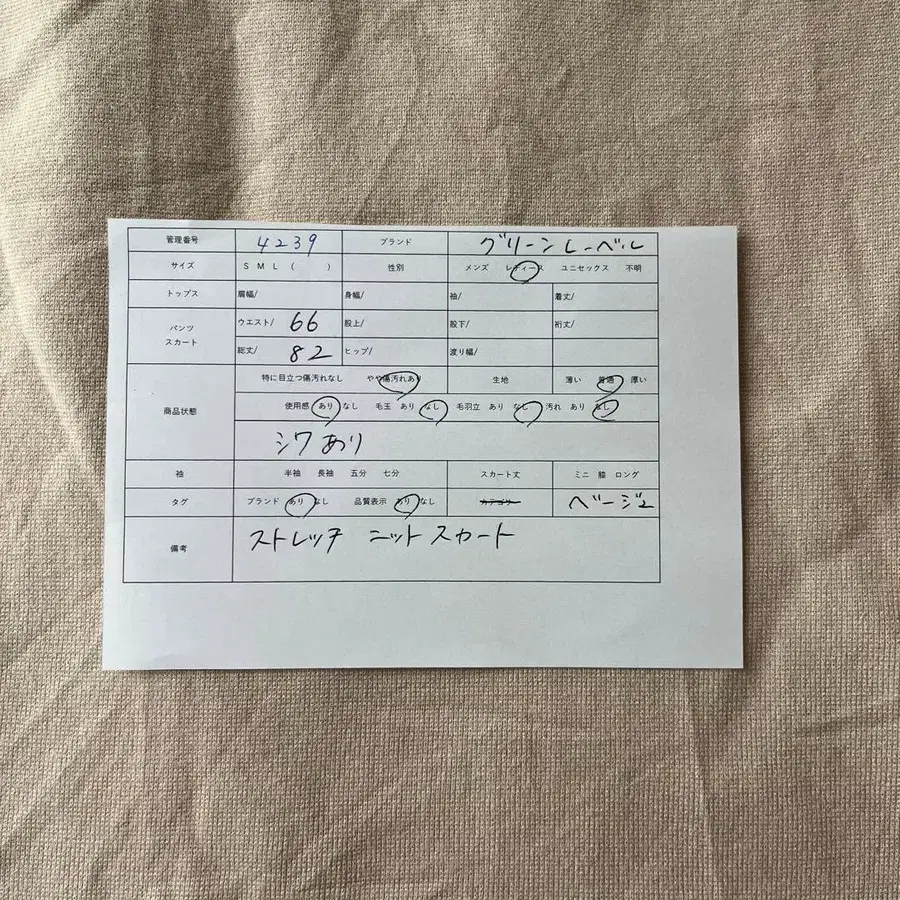 管理番号 4239 ブランド グリーンレーベル
サイズ S M L ( ) 性別 メンズ レディース ユニセックス 不明
トップス 肩幅/ 身幅/ 袖/ 着丈/
パンツ スカート ウエスト/ 66 股上/ 股下/ 裄丈/
総丈/ 82 ヒップ/ 渡り幅/
商品状態 特に目立つ傷汚れなし やや傷汚れあり 生地 薄い 普通 厚い
使用感 あり なし 毛玉 あり なし 毛羽立 あり なし 汚れ あり なし
シワあり
袖 半袖 長袖 五分 七分 スカート丈 ミニ 膝 ロング
タグ ブランド あり なし 品質表示 あり なし カテゴリー ベージュ
備考 ストレッチ ニットスカート